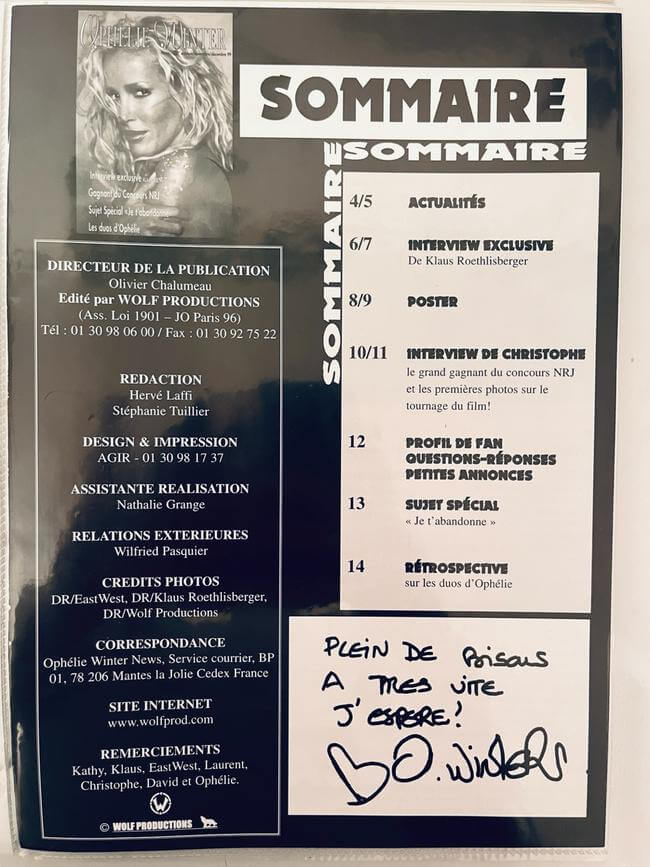 OPHÉLIE WINTER
Interview exclusive
Gagnant du Concours NRJ
Sujet Spécial «Je t'abandonne
Les duos d'Ophélie
DIRECTEUR DE LA PUBLICATION
Olivier Chalumeau
Edité par WOLF PRODUCTIONS
(Ass. Loi 1901 – JO Paris 96)
Tél : 01 30 98 06 00 / Fax : 01 30 92 75 22
REDACTION
Hervé Laffi
Stéphanie Tuillier
DESIGN & IMPRESSION
AGIR - 01 30 98 17 37
ASSISTANTE REALISATION
Nathalie Grange
RELATIONS EXTERIEURES
Wilfried Pasquier
CREDITS PHOTOS
DR/EastWest, DR/Klaus Roethlisberger,
DR/Wolf Productions
CORRESPONDANCE
Ophélie Winter News, Service courrier, BP
01, 78 206 Mantes la Jolie Cedex France
SITE INTERNET
www.wolfprod.com
REMERCIEMENTS
Kathy, Klaus, EastWest, Laurent,
Christophe, David et Ophélie.
W
© WOLF PRODUCTIONS
SOMMAIRE
SOMMAIRE
SOMMAIRE
4/5 ACTUALITÉS
6/7 INTERVIEW EXCLUSIVE
De Klaus Roethlisberger
8/9 POSTER
10/11 INTERVIEW DE CHRISTOPHE
le grand gagnant du concours NRJ
et les premières photos sur le
tournage du film!
12 PROFIL DE FAN
QUESTIONS-RÉPONSES
PETITES ANNONCES
13 SUJET SPÉCIAL
« Je t'abandonne »
14 RÉTROSPECTIVE
sur les duos d'Ophélie
PLEIN DE Bisous
A TRES VITE
J'ESPERE!
O. Winter